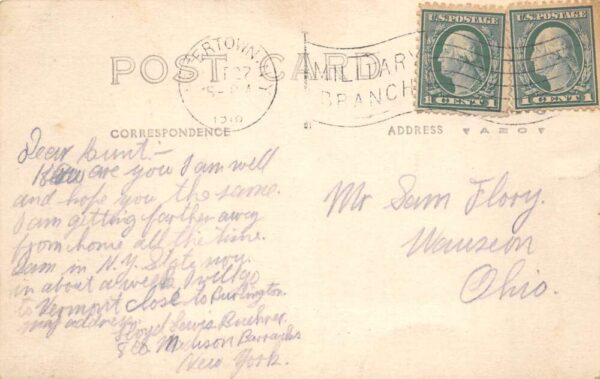 POST CARD
MILITARY
BRANCH
U.S. POSTAGE
1 CENT 1
U.S. POSTAGE
1 CENT 1
CORRESPONDENCE
ADDRESS
AZO
Dear Aunt:-
How are you I am well
and hope you the same.
I am getting farther away
from home all the time.
I am in N.Y. State now.
in about a week I will go
to Vermont close to Burlington.
my address.
Floyd Lewis
Madison Barracks
New York.
Mr Sam Flory.
Wauseon
Ohio.